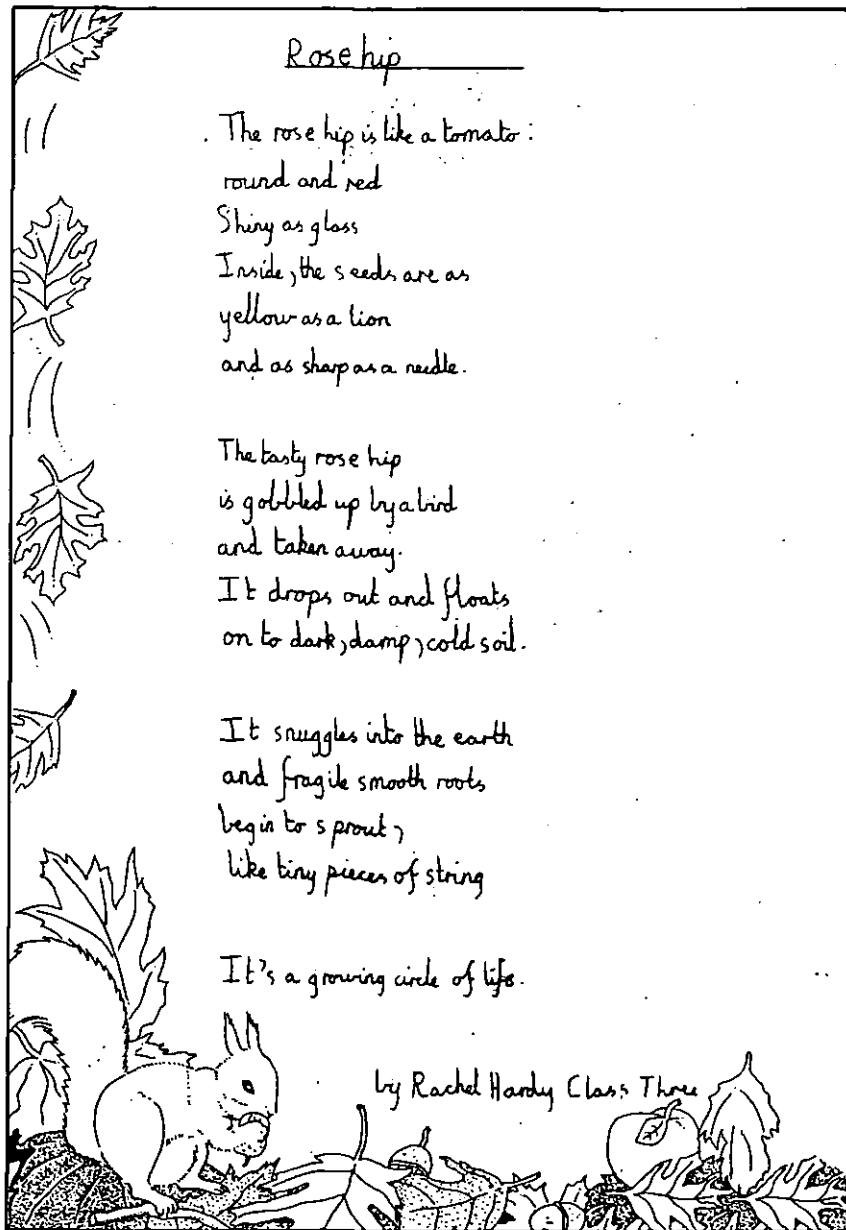 Rose hip
The rose hip is like a tomato:
round and red
Shiny as glass
Inside, the seeds are as
yellow as a lion
and as sharp as a needle.
The tasty rose hip
is gobbled up by a bird
and taken away.
It drops out and floats
on to dark, damp, cold soil.
It snuggles into the earth
and fragile smooth roots
begin to sprout,
like tiny pieces of string
It's a growing circle of life.
by Rachel Hardy Class Three